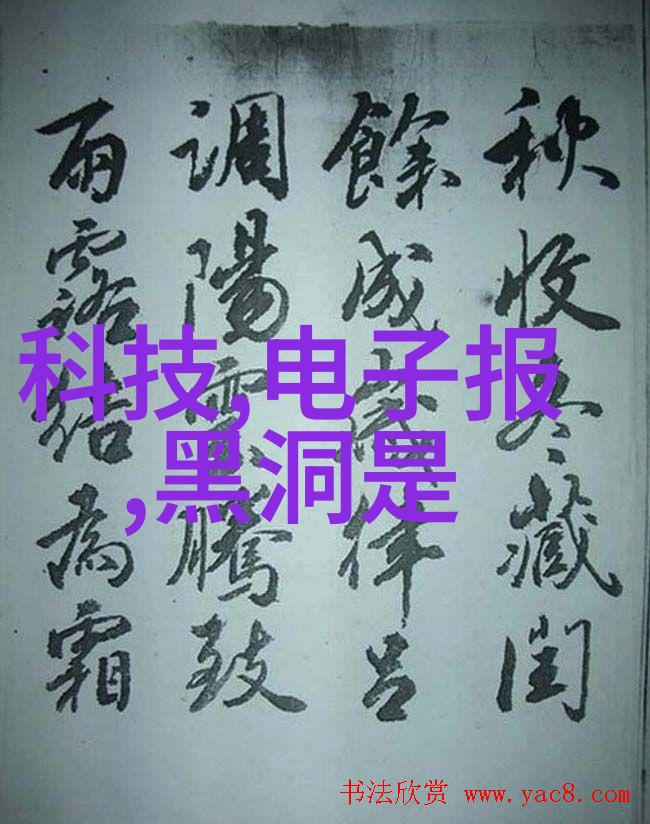 秋收冬藏閏
餘成歲律呂
調陽雲騰致
雨露結為霜
科技,电子报
,黑洞是
书法欣赏 www.yac8.com